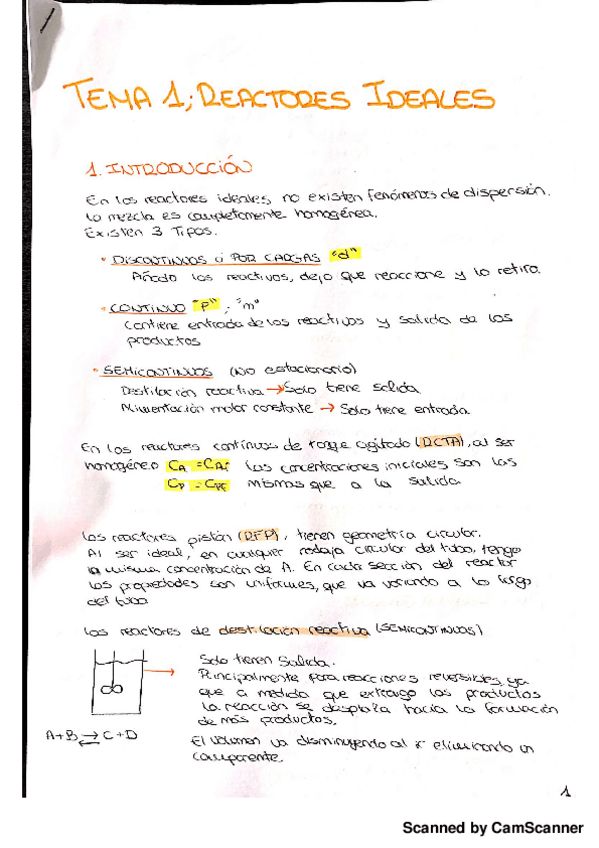 TEMA 1; REACTORES IDEALES
1. INTRODUCCIÓN
En los reactores ideales, no existen fenómenos de dispersión.
La mezcla es completamente homogénea.
Existen 3 Tipos.
• DISCONTINUOS ó POR CARGAS "d"
Añado los reactivos, dejo que reaccione y lo retiro.
• CONTINUO "P" ; "m"
Contiene entrada de los reactivos y salida de los
productos
• SEMICONTINUOS (No estacionario)
Destilación reactiva → Solo tiene salida
Alimentación molar constante → Solo tiene entrada
En los reactores continuos de tanque agitado (RCTA), al ser
homogéneo CA = CAf las concentraciones iniciales son las
CP = CPf mismas que a la salida
Los reactores pistón (RFP), tienen geometría circular.
Al ser ideal, en cualquier rodaja circular del tubo, tengo
la misma concentración de A. En cada sección del reactor
las propiedades son uniformes, que va variando a lo largo
del tubo
Los reactores de destilación reactiva (SEMICONTINUOS)
Solo tienen Salida.
Principalmente para reacciones reversibles, ya
que a medida que extraigo los productos
la reacción se desplaza hacia la formación
de más productos.
A+B ⇄ C+D
El volumen va disminuyendo al ir eliminando un
componente.
1
Scanned by CamScanner